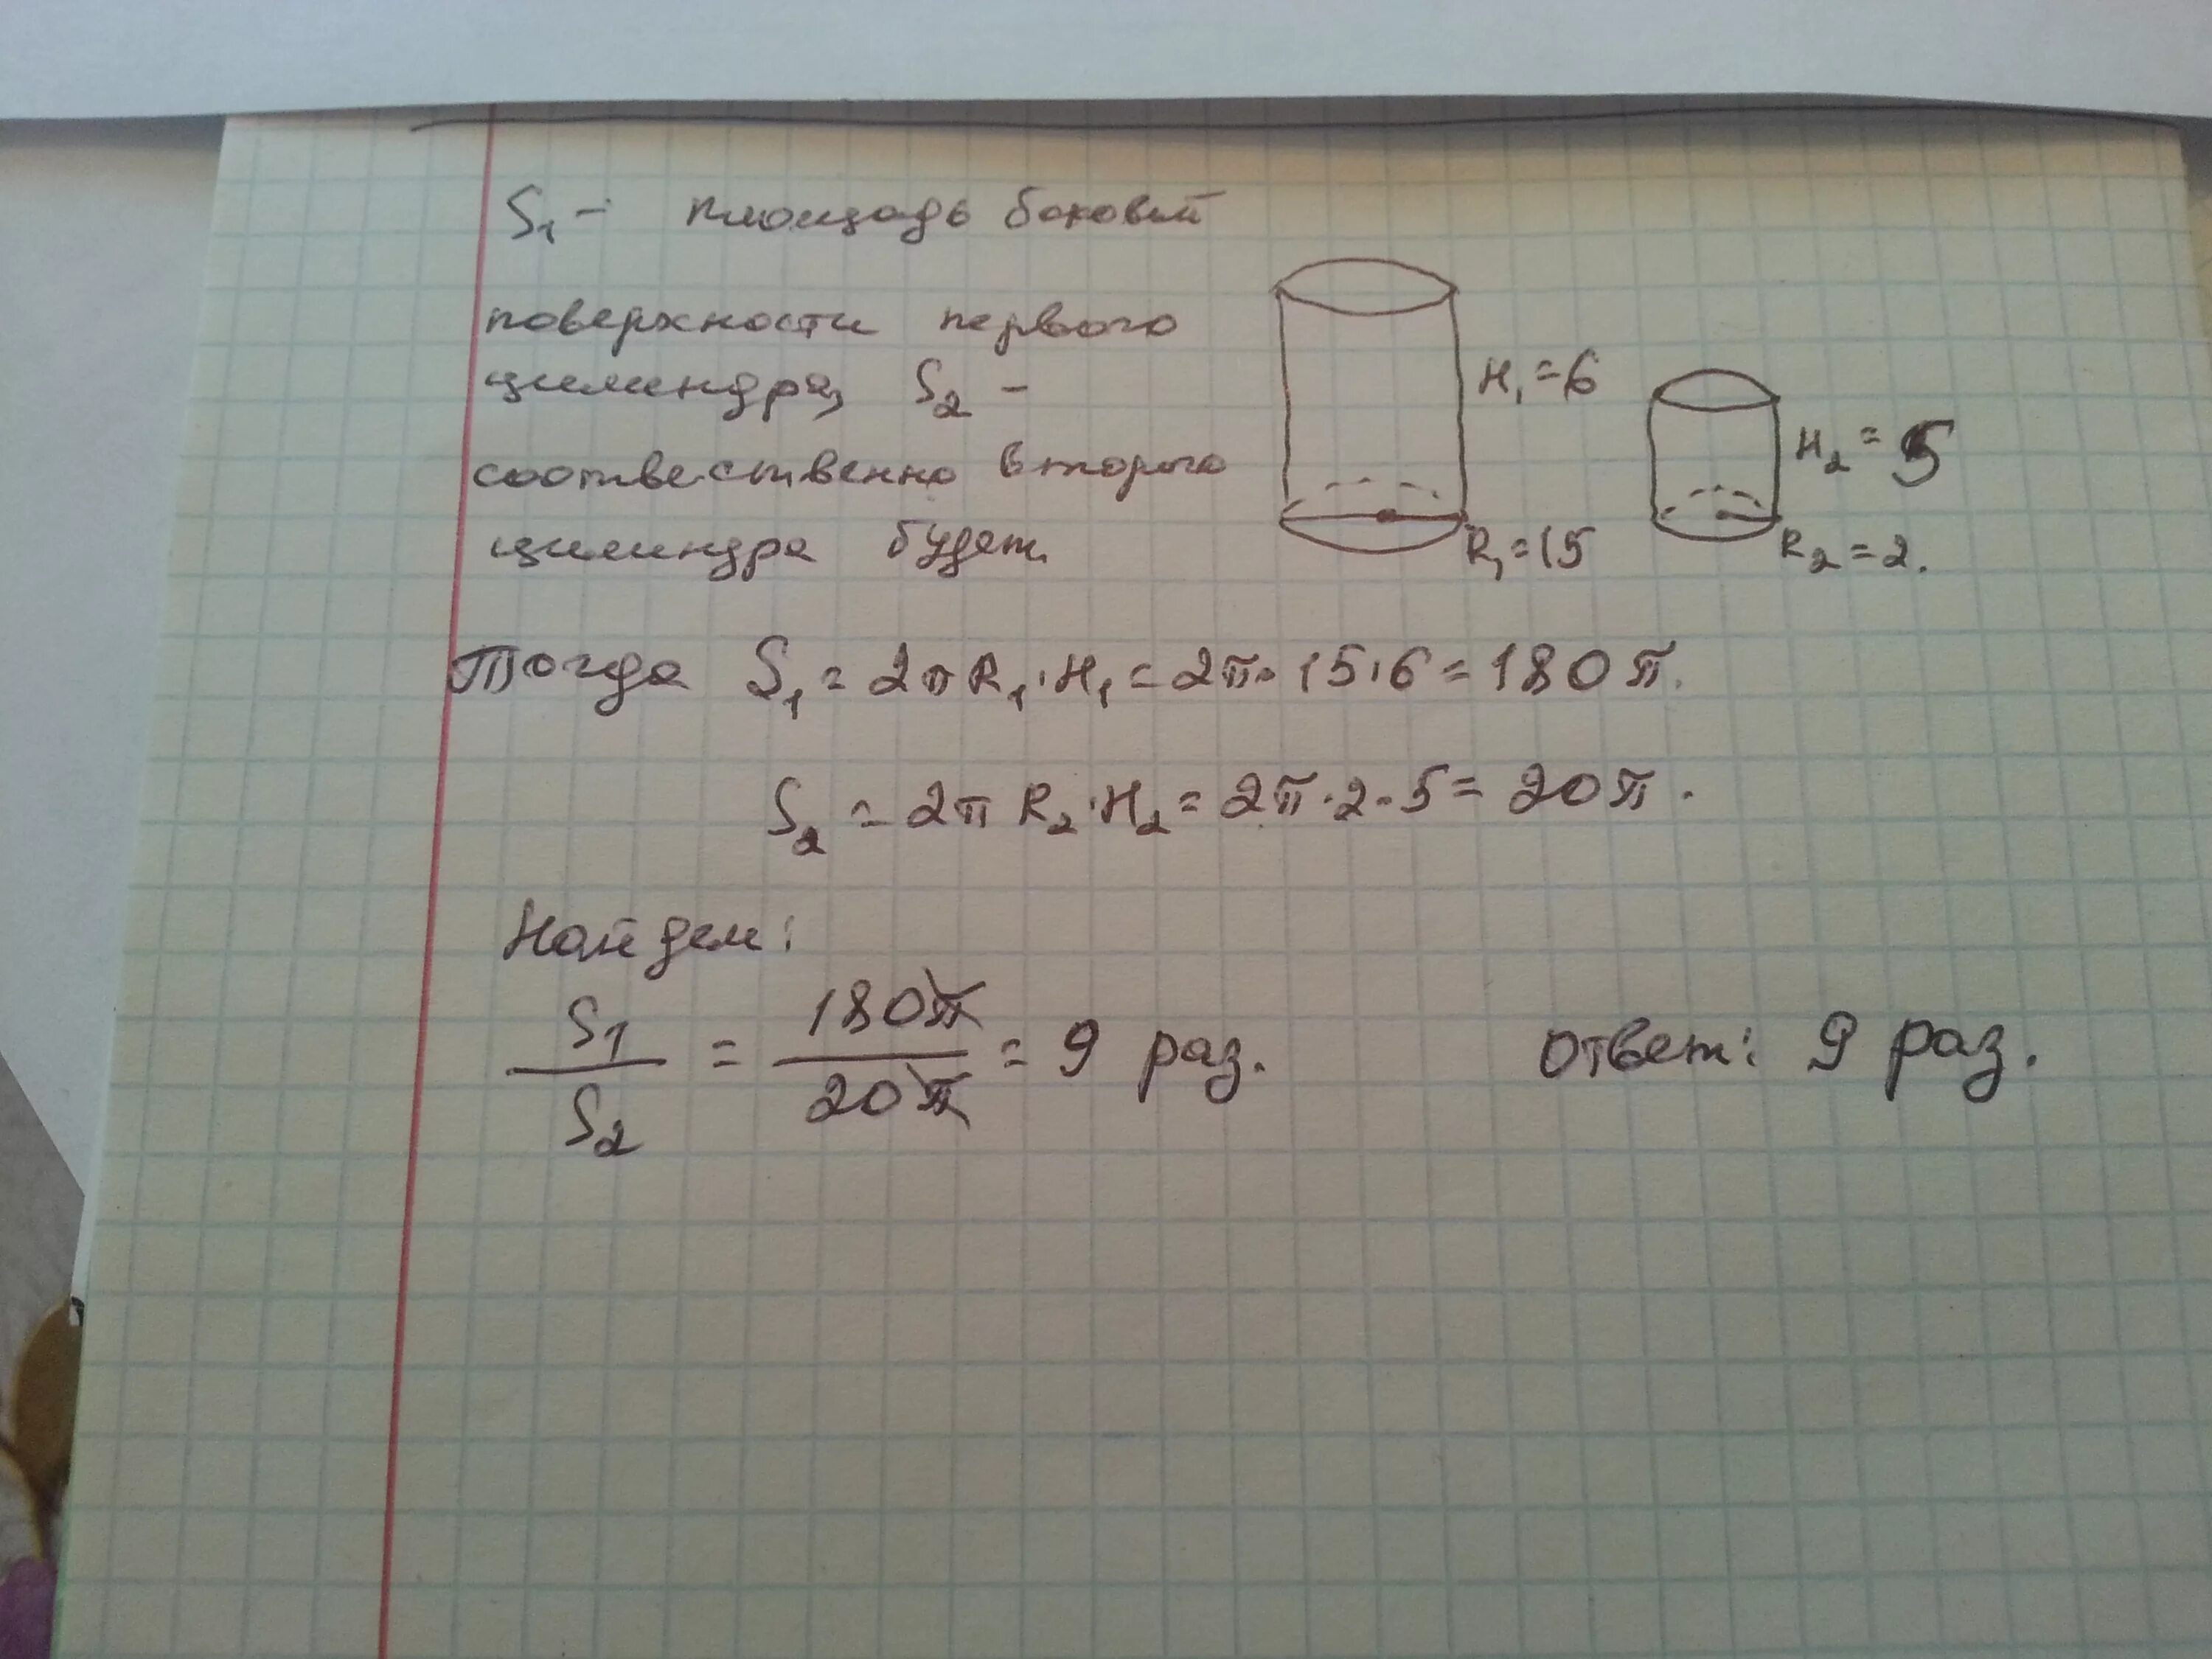 S₁ – площадь боковой
поверхности первого
цилиндра, S₂ –
соотвественно второго
цилиндра будет
H₁=6
R₁=15
H₂=5
R₂=2.
Тогда S₁=2πR₁·H₁=2π·15·6=180π.
S₂=2πR₂·H₂=2π·2·5=20π.
Найдем:
S₁/S₂=180π/20π=9 раз.
Ответ: 9 раз.